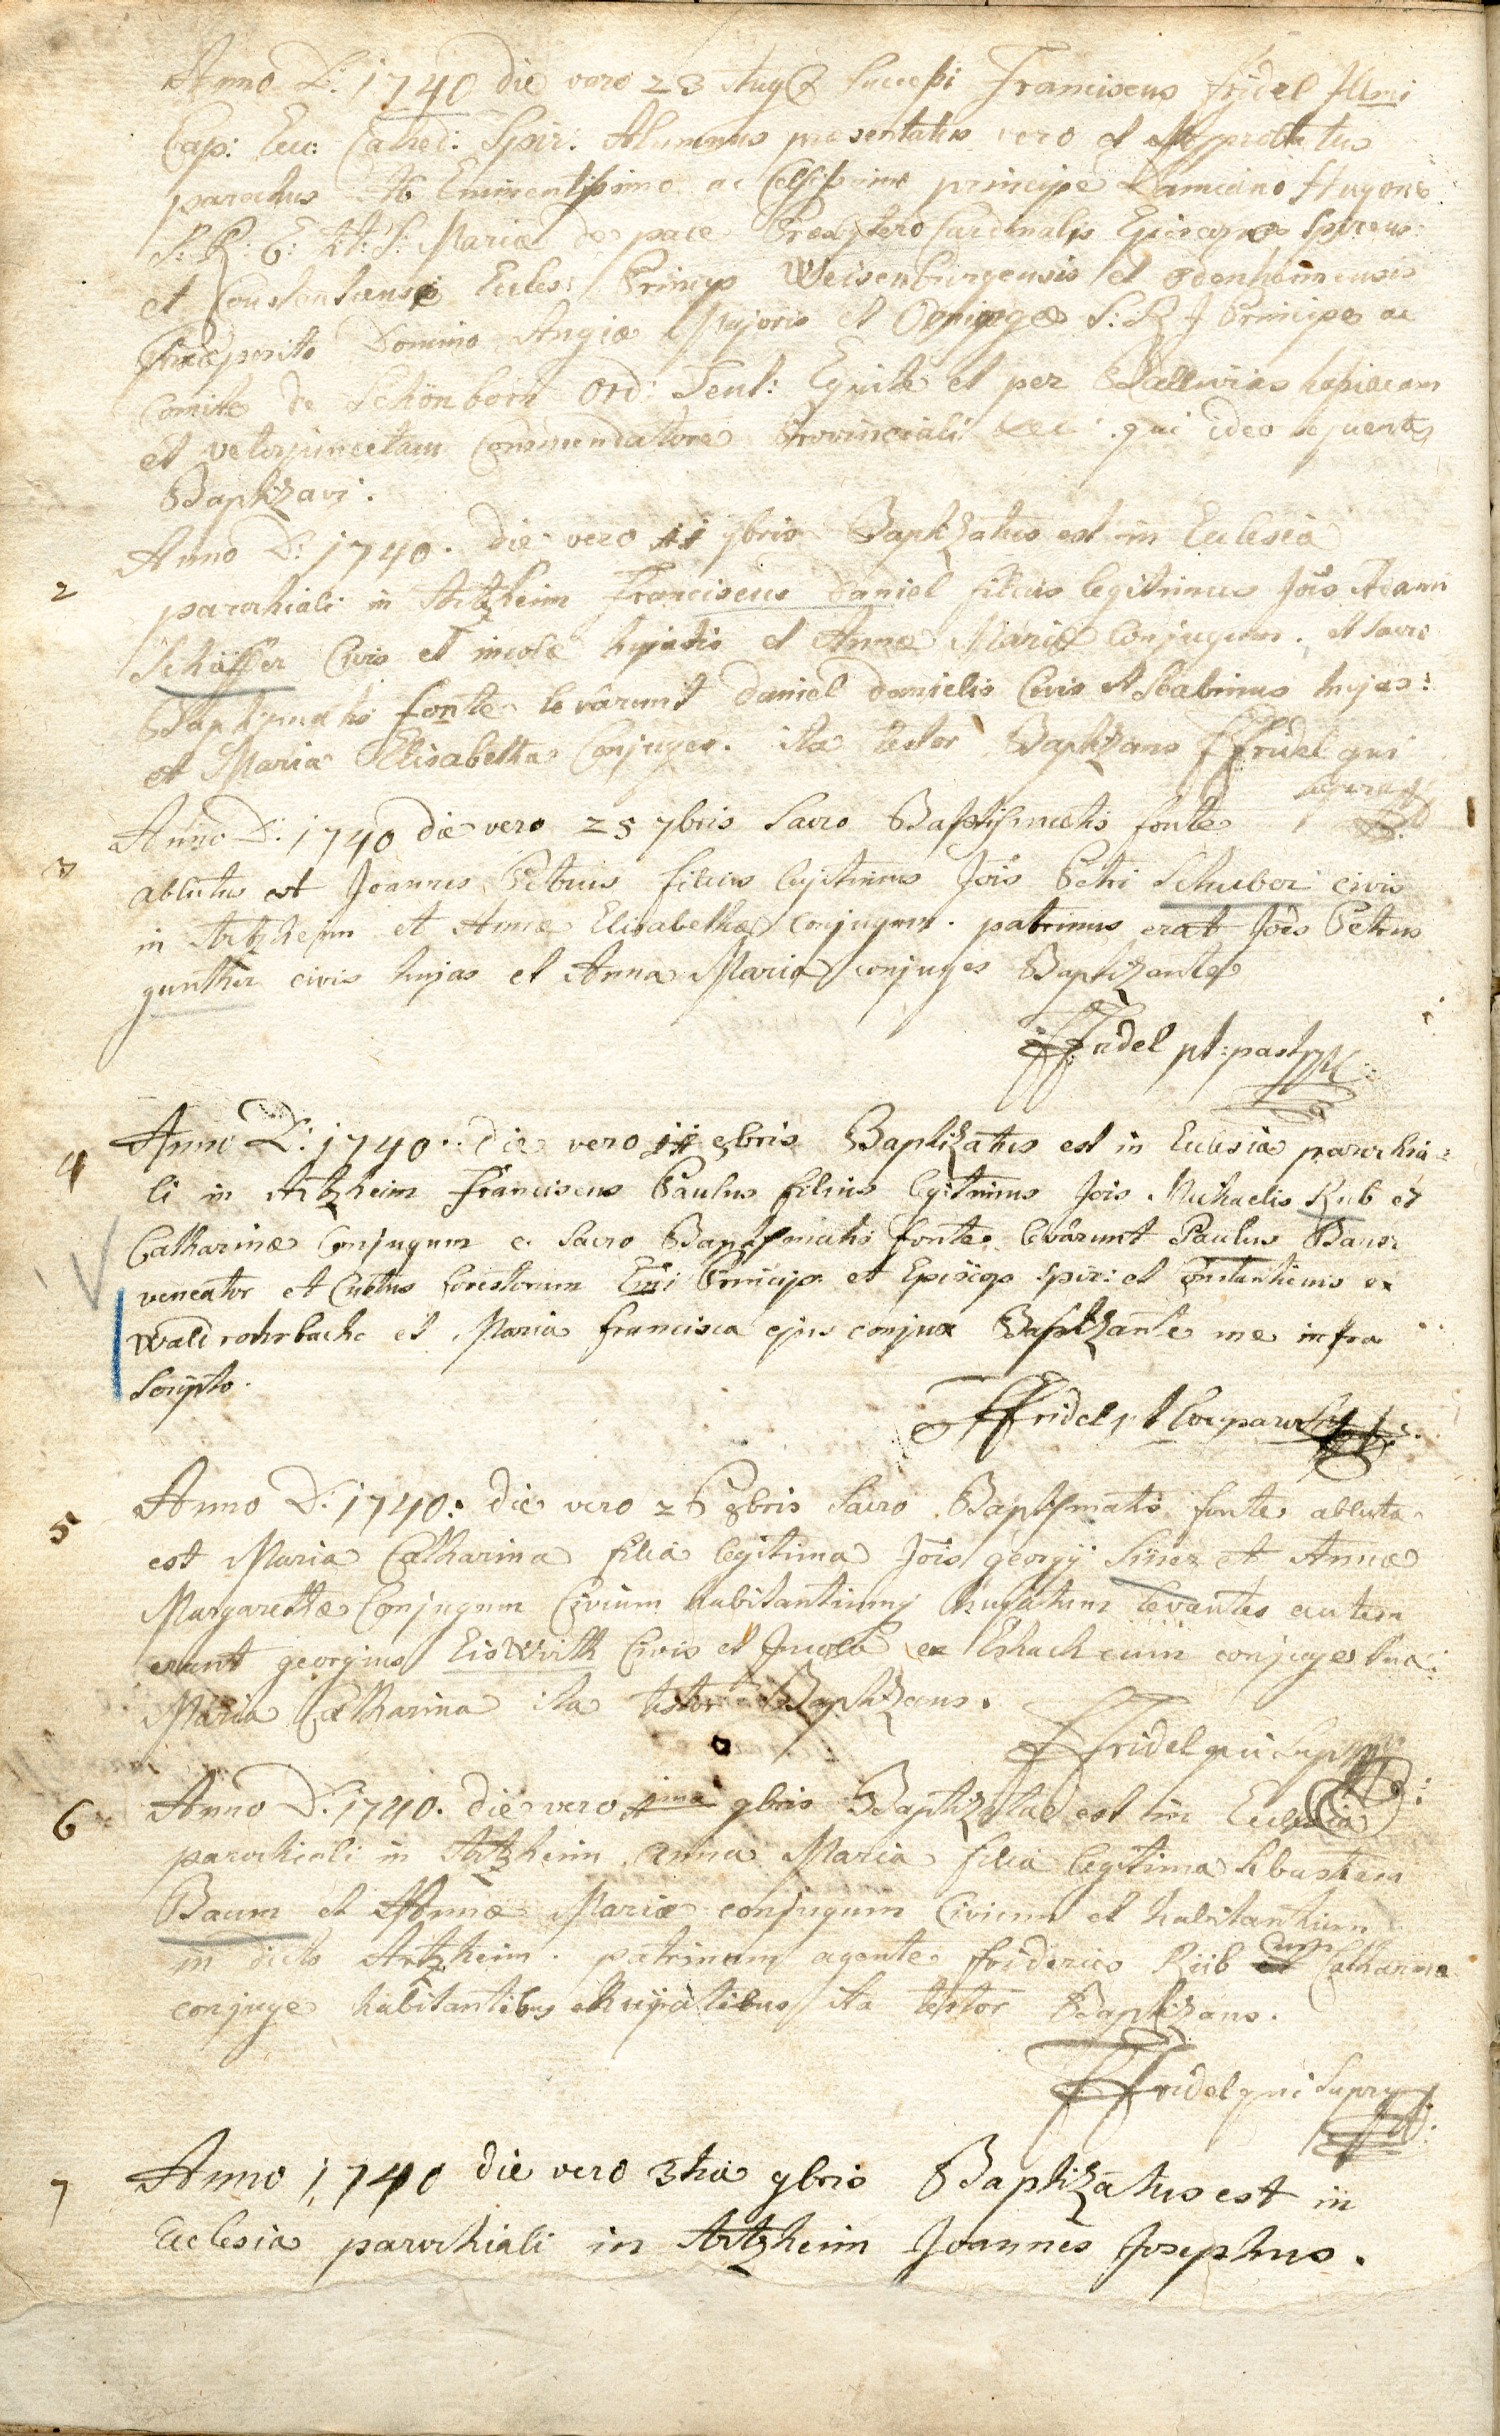 Anno D: 1740 die vero 23 Aug Successi Franciscus frÿdel Illmi
Cap: Ecc: Cathed: Spir: Alumnus presentatus vero et Approbatus
parochus Ab Eminentissimo ac Celsissimo principe Damiano Hugone
S: R: E: tit: S: Mariæ de pace Præsbytero Cardinalis Episcopo Spirens:
et Constantiensi Eccles: Princip Weisenburgensis et Odenheimensis
Præposito Domino Augiæ Majoris et Oeningæ S: R J Principe ac
Comite de Schönborn Ord: Teut: Equite et per Balluvias hassiacam
et veterjuncetam Commendatore Provinciali &ec: qui ideo sequentes
Baptizavi.
2
Anno D: 1740. die vero 11 7bris Baptizatus est in Eclesia
parochiali in Artzheim Franciscus Daniel filius legitimus Jois Adami
Schäffer Civis et incolæ hujatis et Annæ Mariæ Conjugum. et sacro
Baptismatis fonte levarunt Daniel Danielis Civis et Scabinus hujas:
et Maria Elisabetha Conjuges. ita testor Baptizans FFridel qui
supra
3
Anno D: 1740 die vero 25 7bris Sacro Baptismatis fonte
ablutus est Joannes Petrus filius legitimus Jois Petri Schuber civis
in Artzheim et Annæ Elisabethæ conjugum. patrinus erat Jois Petrus
gunther civis hujas et Anna Maria conjuges Baptizante
FFridel pt: past
4
Anno D: 1740. die vero 11 8bris Baptizatus est in Eclesia parochia=
li in Artzheim Franciscus Paulus filius legitimus Jois Michaelis Rub et
Catharinæ Conjugum e sacro Baptismatis fonte levarunt Paulus Baur
venator et Custos forestorum Emi Princip et Episcop Spir: et Constantiensis ex
Wald rohrbach et Maria Francisca ejus conjux Baptizante me infra
Scripto.
FFridel pt loci paroch
5
Anno D: 1740: die vero 26 8bris Sacro Baptismatis fonte abluta
est Maria Catharina filia legitima Jois georgÿ Siner et Annæ
Margarethæ Conjugum Civium habitantiumq hujatum levantes autem
erant georgius EisWirth Civis et Incola ex Eshach cum conjuge sua:
Maria Catharina ita testor Baptizans.
FFridel qui supra
6
Anno D: 1740. die vero 1ma 9bris Baptizata est in Eclesia
parochiali in Artzheim anna Maria filia legitima Sebastiani
Baum et Annæ Mariæ conjugum Civium et habitantium
in dicto Artzheim. patrinum agente friderico Rüb cum Catharina
conjuge habitantibus hujatibus ita testor Baptizans.
FFridel qui supra
7
Anno 1740 die vero 3tia 9bris Baptizatus est in
Eclesia parochiali in Artzheim Joannes Josephus.